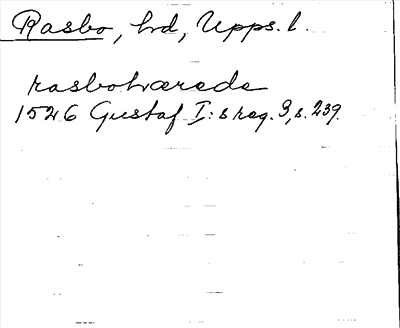 Rasbo, hd, Upps. l.
rasbohærede
1526 Gustaf I:s reg. 3, s. 239.